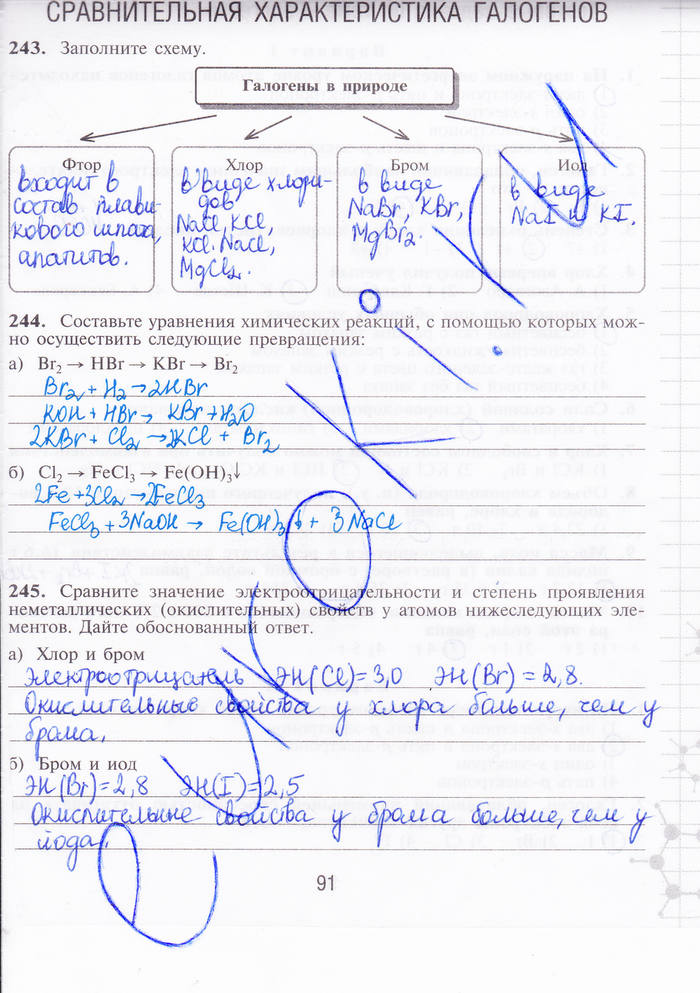 СРАВНИТЕЛЬНАЯ ХАРАКТЕРИСТИКА ГАЛОГЕНОВ
243. Заполните схему.
Галогены в природе
Фтор
входит в
состав плави-
кового шпата,
апатитов.
Хлор
в виде хлори-
дов
NaCl, KCl,
KCl·NaCl,
MgCl₂.
Бром
в виде
NaBr, KBr,
MgBr₂.
Иод
в виде
NaI и KI.
244. Составьте уравнения химических реакций, с помощью которых мож-
но осуществить следующие превращения:
а) Br₂ → HBr → KBr → Br₂
Br₂ + H₂ → 2HBr
KOH + HBr → KBr + H₂O
2KBr + Cl₂ → 2KCl + Br₂
б) Cl₂ → FeCl₃ → Fe(OH)₃↓
2Fe + 3Cl₂ → 2FeCl₃
FeCl₃ + 3NaOH → Fe(OH)₃↓ + 3NaCl
245. Сравните значение электроотрицательности и степень проявления
неметаллических (окислительных) свойств у атомов нижеследующих эле-
ментов. Дайте обоснованный ответ.
а) Хлор и бром
Электроотрицатель ЭН(Cl)=3,0 ЭН(Br)=2,8.
Окислительные свойства у хлора больше, чем у
брома.
б) Бром и иод
ЭН(Br)=2,8 ЭН(I)=2,5
Окислительные свойства у брома больше, чем у
йода.
91